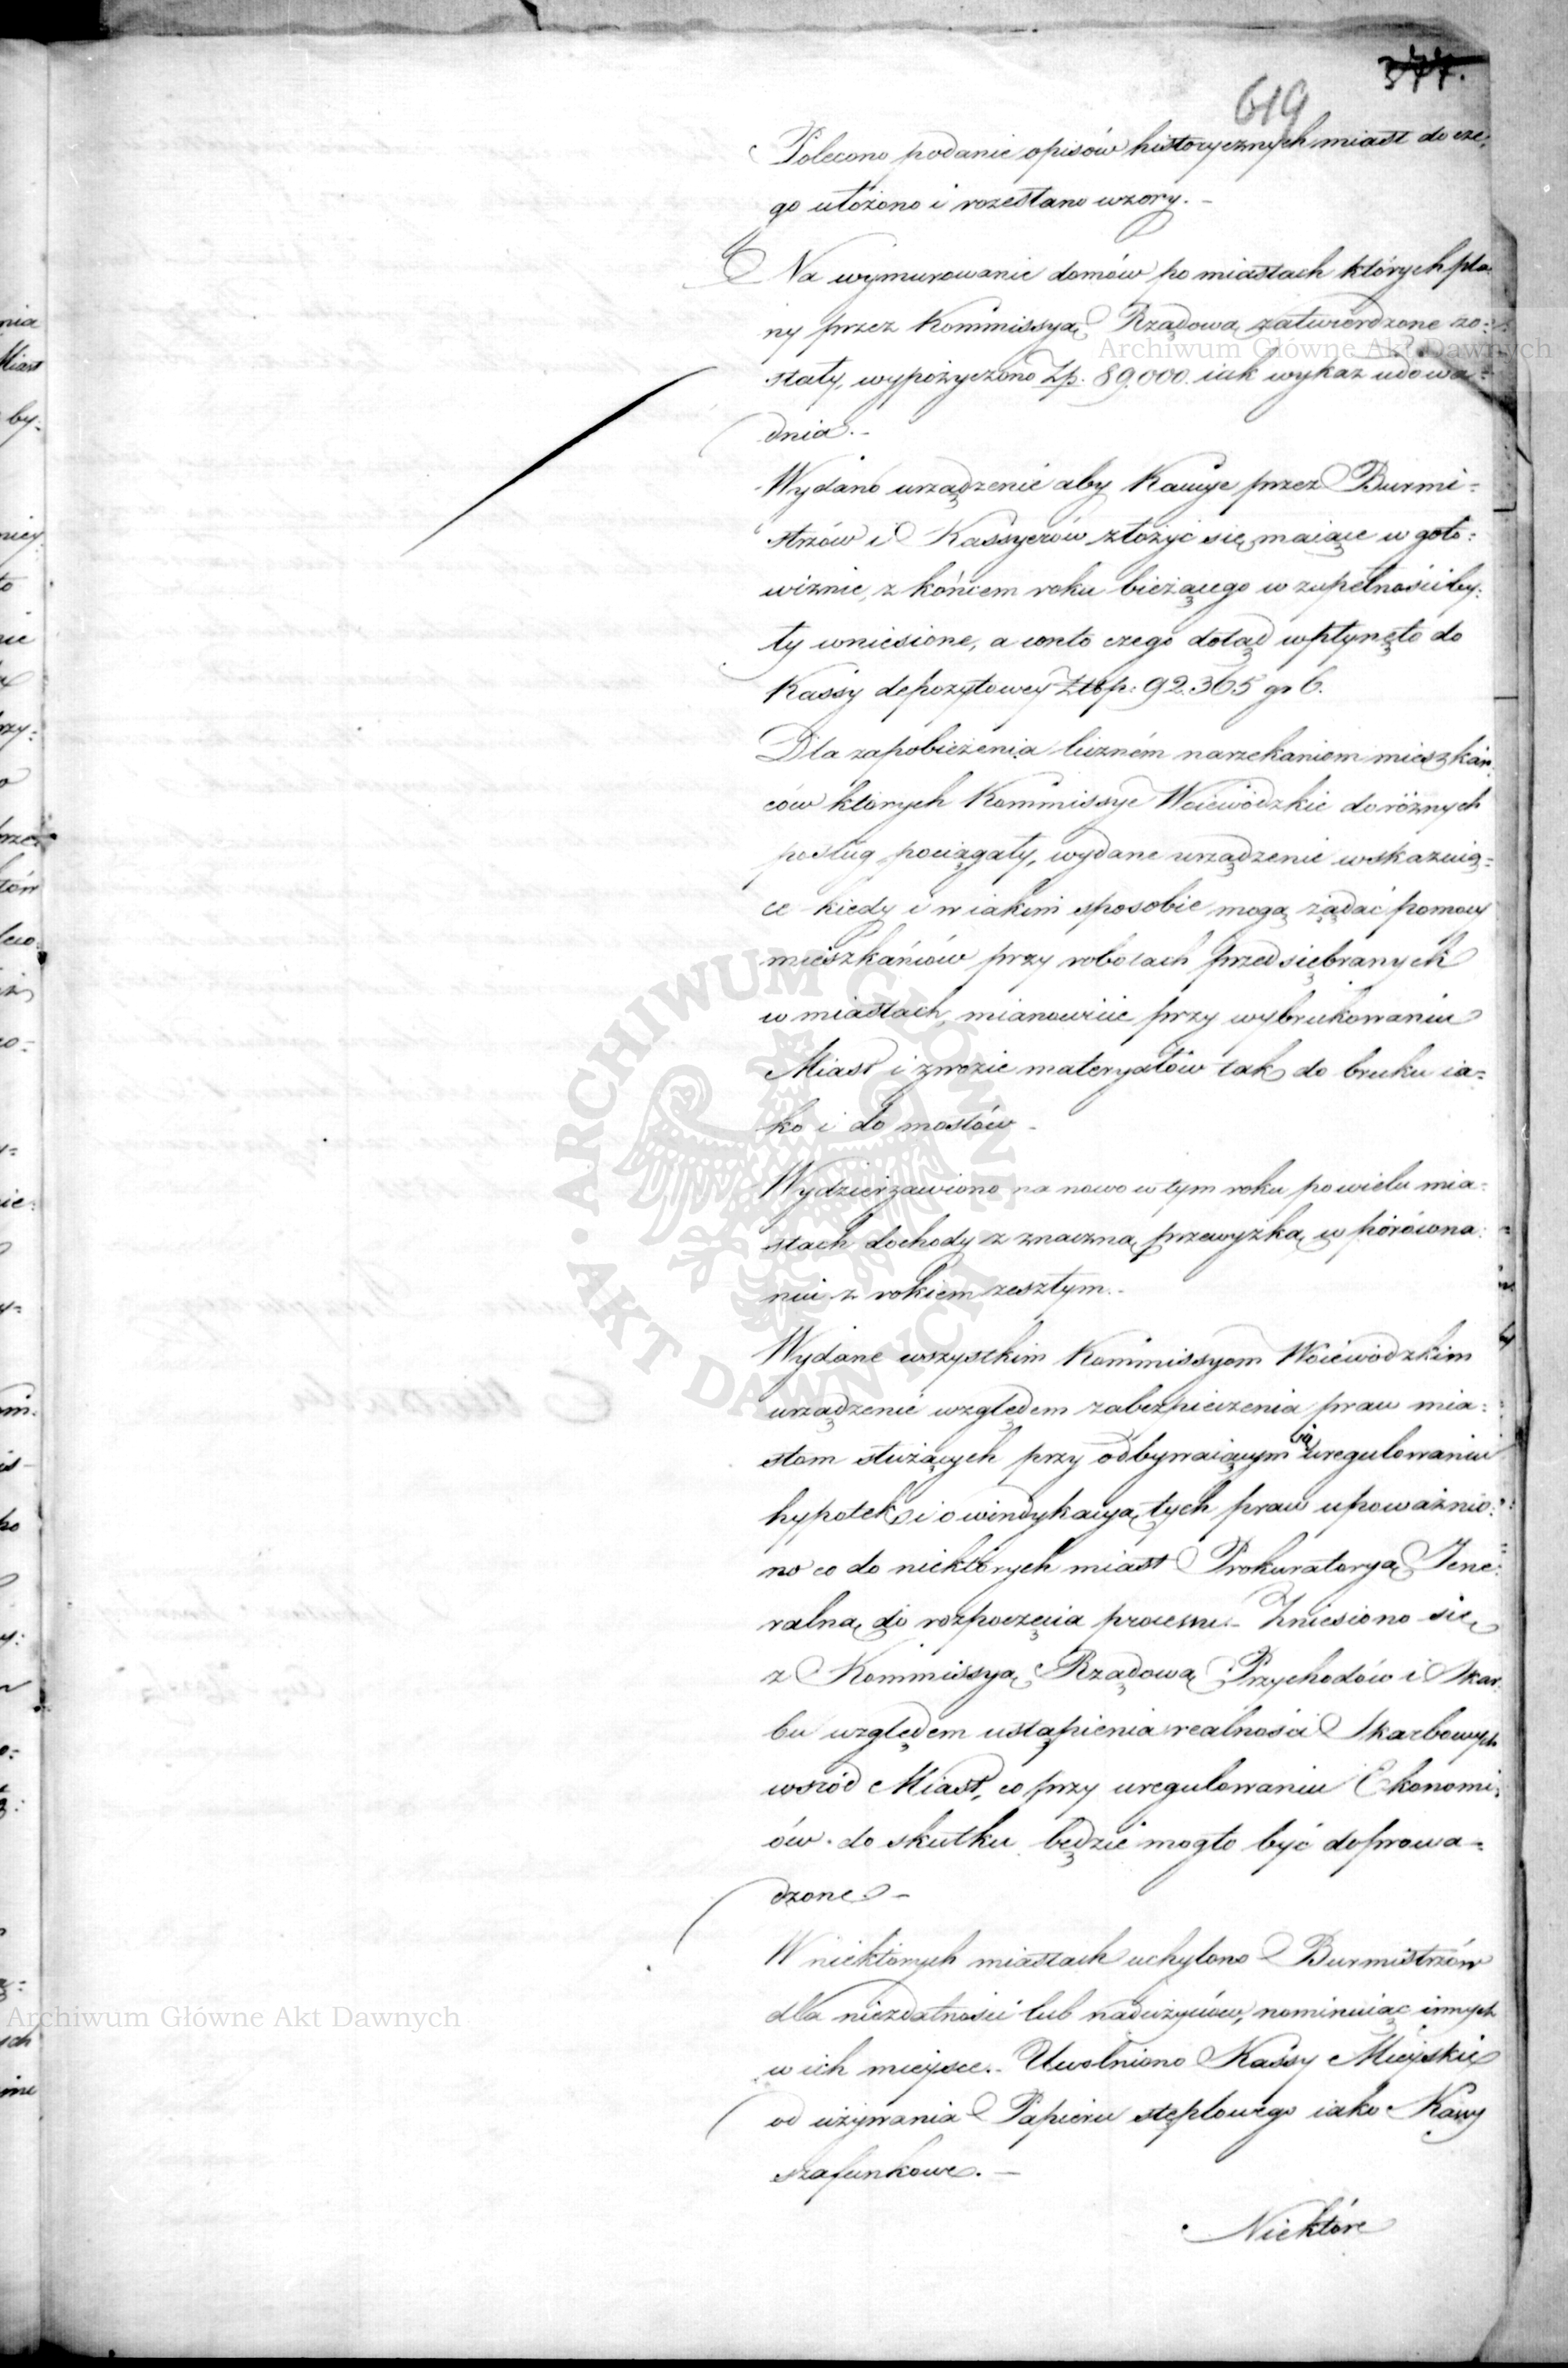 377.
619
Polecono podanie opisów historycznych miast do cze:
go ułożono i rozesłano wzory. –
Na wymurowanie domów po miastach których pla:
ny przez Kommissyą Rządową zatwierdzone zo:
stały, wypożyczono Złp. 89,000. iak wykaz udowa:
dnia. –
Wydano urządzenie aby Kaucye przez Burmi:
strzów i Kassyerów złożyć się maiące w goto:
wiznie, z końcem roku bieżącego w zupełności by:
ły wniesione, a conto czego dotąd wpłynęło do
Kassy depozytowey Złp: 92.365 gr 6.
Dla zapobieżenia liczném narzekaniom mieszkań:
ców których Kommissye Woiewódzkie do różnych
posług pociągały, wydane urządzenie wskazuią:
ce kiedy i w iakim sposobie mogą żądać pomocy
mieszkańców przy robotach przedsiębranych
w miastach, mianowicie przy wybrukowaniu
Miast i zwozie materyałów tak do bruku ia:
ko i do mostów –
Wydzierżawiono na nowo w tym roku po wielu mia:
stach dochody z znaczną przewyżką w porówna:
niu z rokiem zeszłym. –
Wydane wszystkim Kommissyom Woiewódzkim
urządzenie względem zabezpieczenia praw mia:
stom służących przy odbywaiącym się uregulowaniu
hypotek i o windykacyą tych praw upoważnio:
no co do niektórych miast Prokuratoryą Jene:
ralną do rozpoczęcia processu. – Zniesiono się
z Kommissyą Rządową Przychodów i Skar:
bu względem ustąpienia realności Skarbowych
wśród Miast, co przy uregulowaniu Ekonomi:
ów do skutku będzie mogło być doprowa:
dzone –
W niektórych miastach uchylono Burmistrzów
dla niezdatności lub nadużyciów, nominuiąc innych
w ich miejsce. – Uwolniono Kassy Miejskie
od używania Papieru stęplowego iako Kassy
szafunkowe. –
Niektóre
Archiwum Główne Akt Dawnych
Archiwum Główne Akt Dawnych
ARCHIWUM GŁÓWNE AKT DAWNYCH